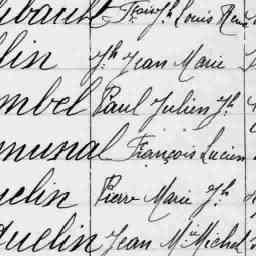 Louis René
lin Jh Jean Marie
mbel Paul Julien Jh
munal François Lucien
uelin Pierre Marie Jh
quelin Jean Mie Michel